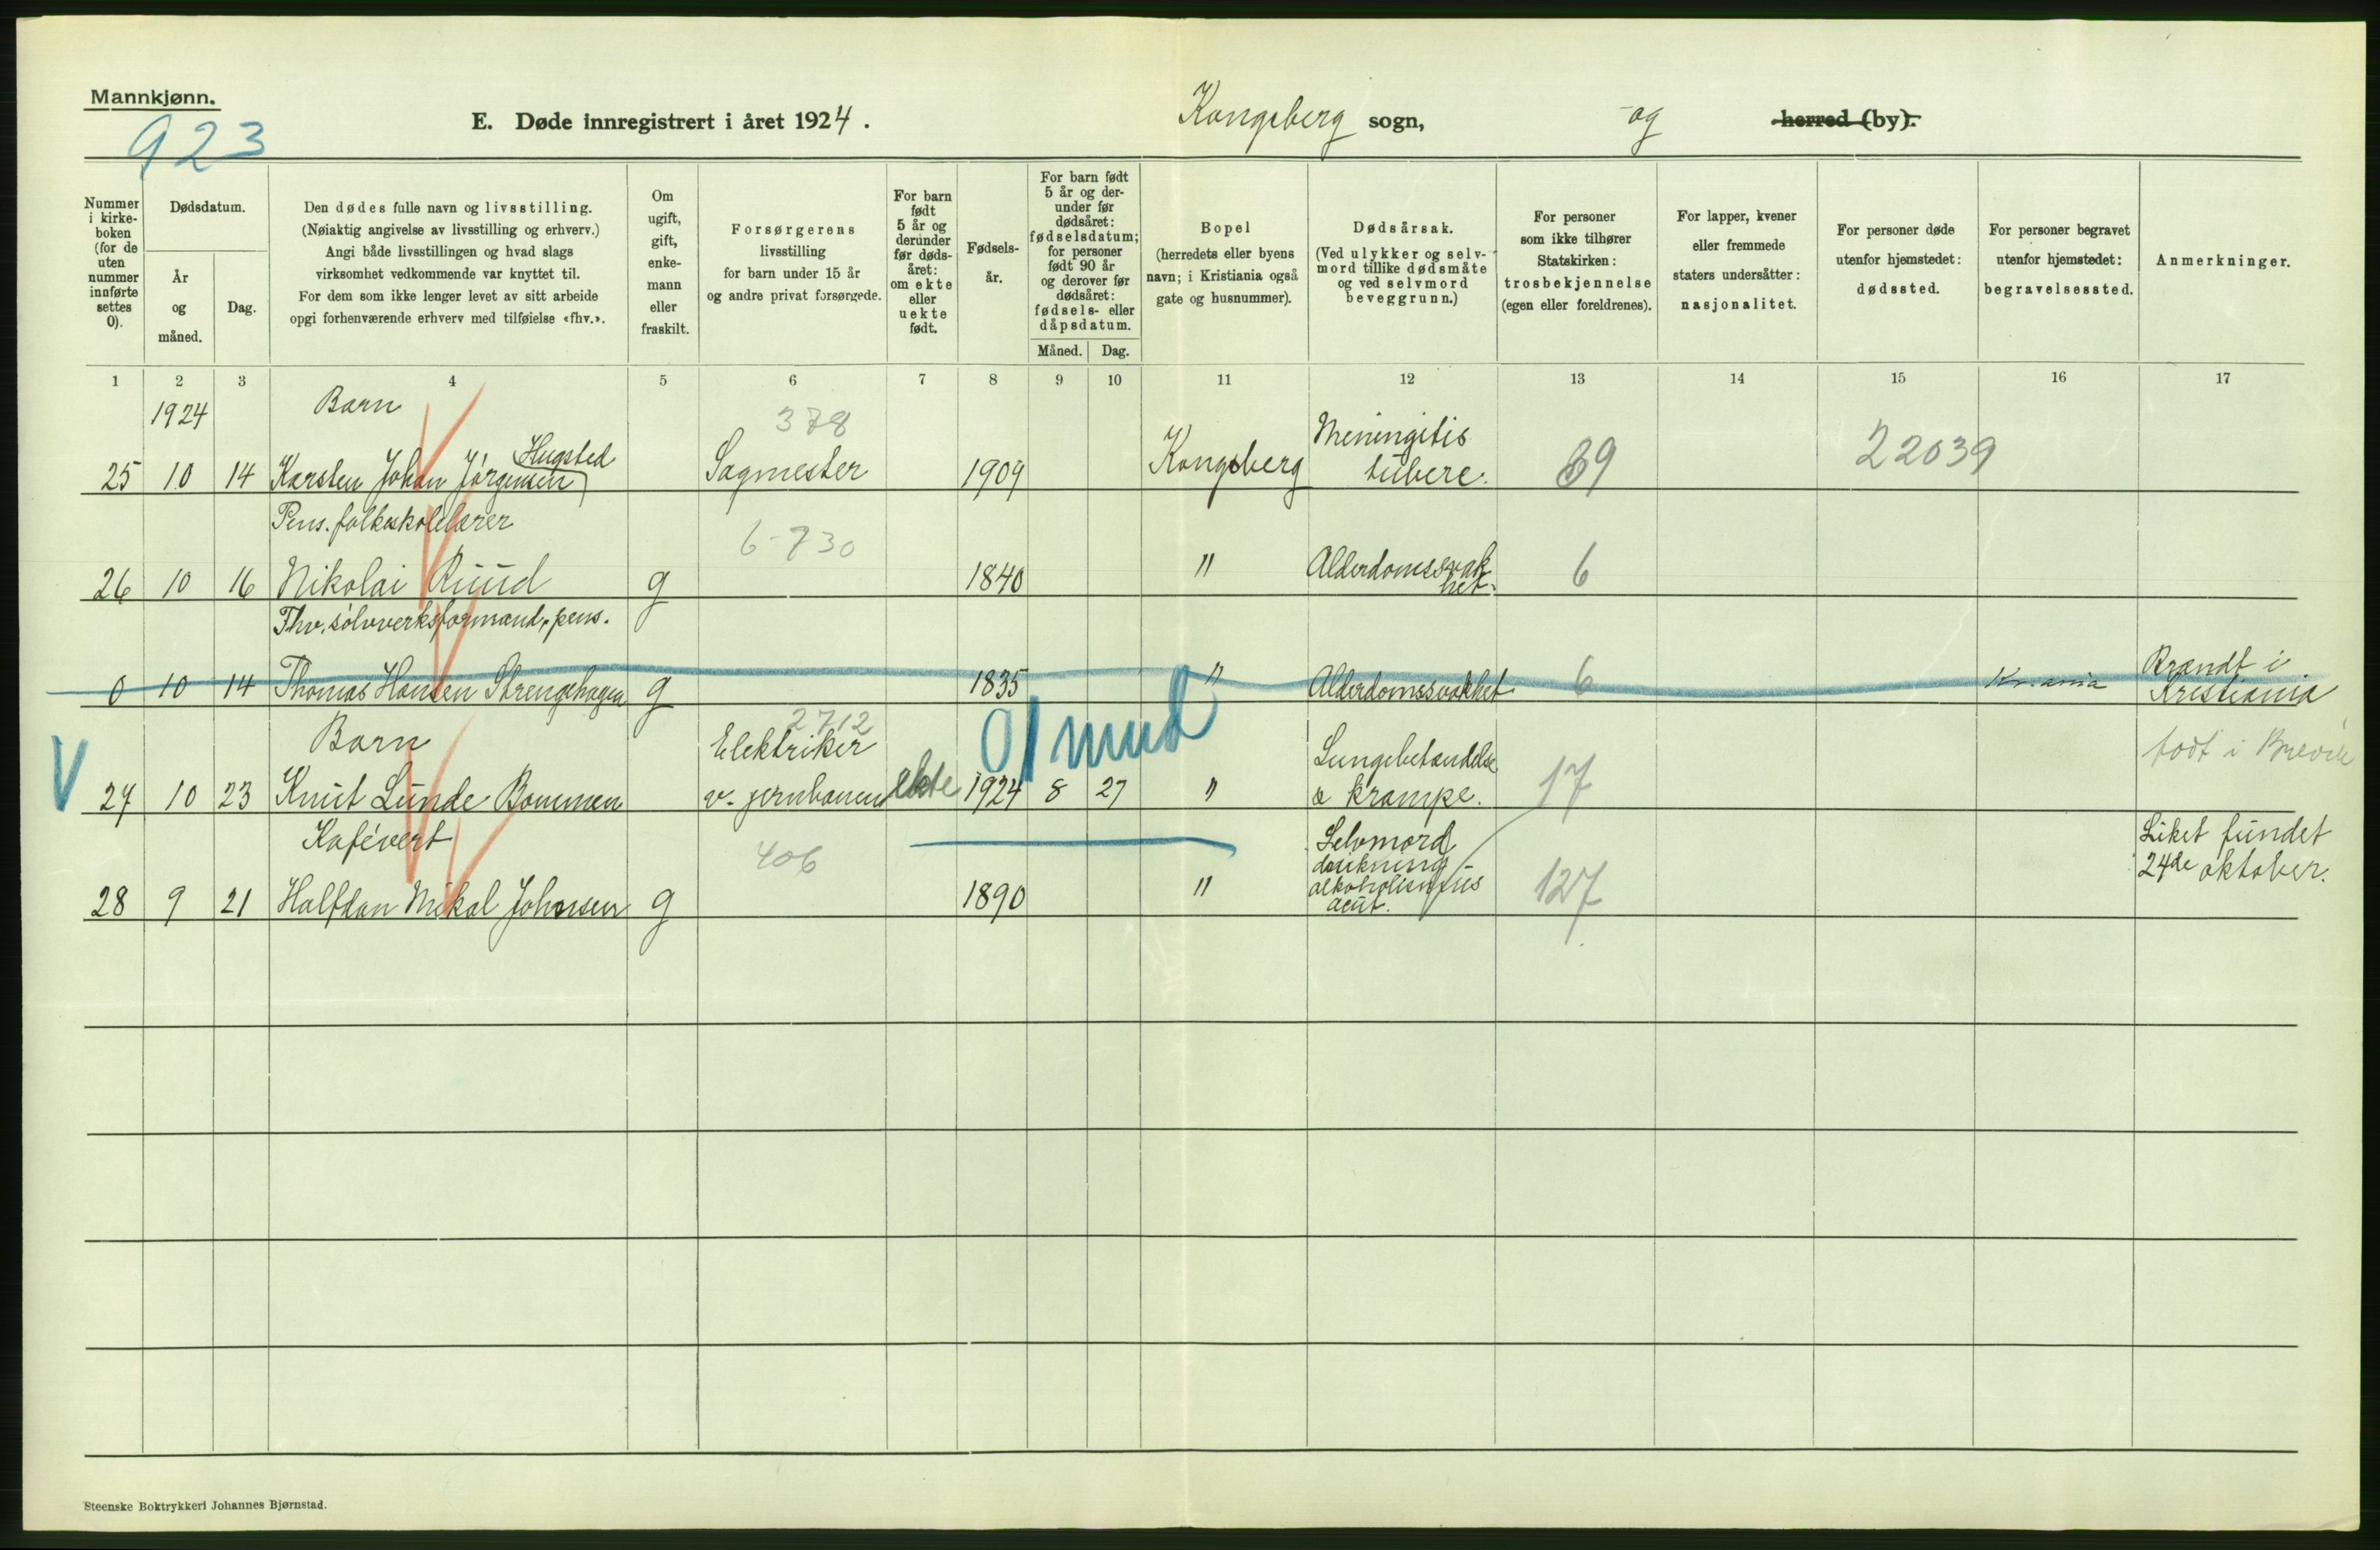 Mannkjønn.
923
E. Døde innregistrert i året 1924.
Kongsberg sogn, og herred (by).
Nummer i kirke-boken (for de uten nummer innførte settes 0).
Dødsdatum.
År og måned.
Dag.
Den dødes fulle navn og livsstilling.
(Nøiaktig angivelse av livsstilling og erhverv.)
Angi både livsstillingen og hvad slags
virksomhet vedkommende var knyttet til.
For dem som ikke lenger levet av sitt arbeide
opgi forhenværende erhverv med tilføielse «fhv.».
Om ugift, gift, enke-mann eller fraskilt.
Forsørgerens
livsstilling
for barn under 15 år
og andre privat forsørgede.
For barn født 5 år og derunder før døds-året: om ekte eller uekte født.
Fødsels-år.
For barn født 5 år og der-under før dødsåret: fødselsdatum; for personer født 90 år og derover før dødsåret: fødsels- eller dåpsdatum.
Måned.
Dag.
Bopel
(herredets eller byens
navn; i Kristiania også
gate og husnummer).
Dødsårsak.
(Ved ulykker og selv-
mord tillike dødsmåte
og ved selvmord
beveggrunn.)
For personer
som ikke tilhører
Statskirken:
trosbekjennelse
(egen eller foreldrenes).
For lapper, kvener
eller fremmede
staters undersåtter:
nasjonalitet.
For personer døde
utenfor hjemstedet:
dødssted.
For personer begravet
utenfor hjemstedet:
begravelsessted.
Anmerkninger.
1 2 3 4 5 6 7 8 9 10 11 12 13 14 15 16 17
1924 Barn 378 Meningitis
Hugsted
25 10 14 Karsten Johan Jørgensen Sagmester 1909 Kongsberg tuberc. 39 22039
Pens. folkeskolelærer 6-730
26 10 16 Nikolai Ruud g 1840 " Alderdomssvakhet. 6
Fhv. sølvverksformand, pens.
0 10 14 Thomas Hansen Strengehagen g 1835 " Alderdomssvakhet 6 Kr.ania Brændt i Kristiania
Barn 2712 0/mnd
V 27 10 23 Knut Lunde Bommen Elektriker v. jernbanen ekte 1924 8 27 " Lungebetændelse & krampe. 17 født i Brevik
Kafévert 406
28 9 21 Halfdan Mikal Johnsen g 1890 " Selvmord drukning alkoholismus acut. 127 Liket fundet 24de oktober.
Steenske Boktrykkeri Johannes Bjørnstad.